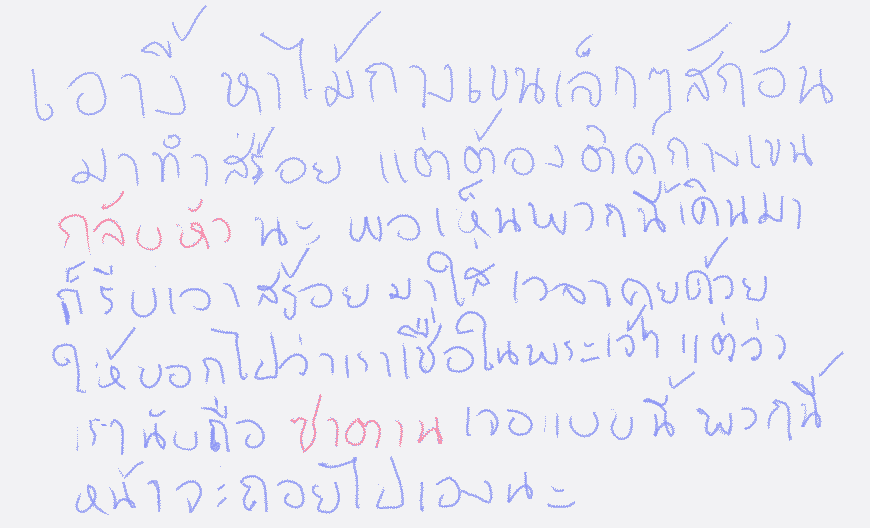 เอางี้ หาไม้กางเขนเล็กๆสักอัน
มาทำสร้อย แต่ต้องติดกางเขน
กลับหัว นะ พอเห็นพวกนี้เดินมา
ก็รีบเอา สร้อย มาใส่ เวลาคุยด้วย
ให้บอกไปว่าเราเชื่อในพระเจ้า แต่ว่า
เรานับถือ ซาตาน เจอแบบนี้ พวกนี้
หน้าจะถอยไปเองนะ